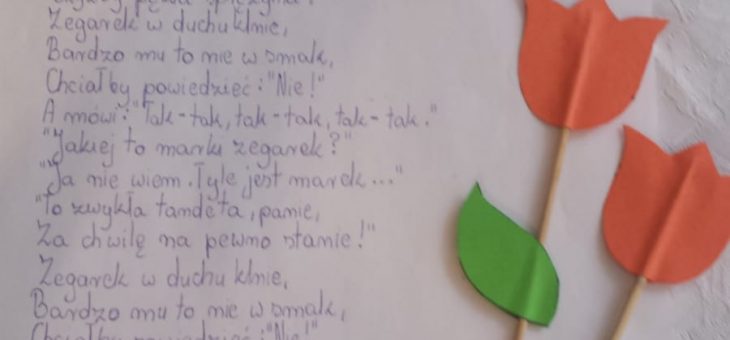 pewna sprężyna.
Zegarek w duchu klnie,
Bardzo mu to nie w smak,
Chciałby powiedzieć: "Nie!"
A mówi: "Tak-tak, tak-tak, tak-tak."
"Jakiej to marki zegarek?"
"Ja nie wiem. Tyle jest marek..."
"To zwykła tandeta, panie,
Za chwilę na pewno stanie!"
Zegarek w duchu klnie,
Bardzo mu to nie w smak,
Chciałby powiedzieć: "Nie!"